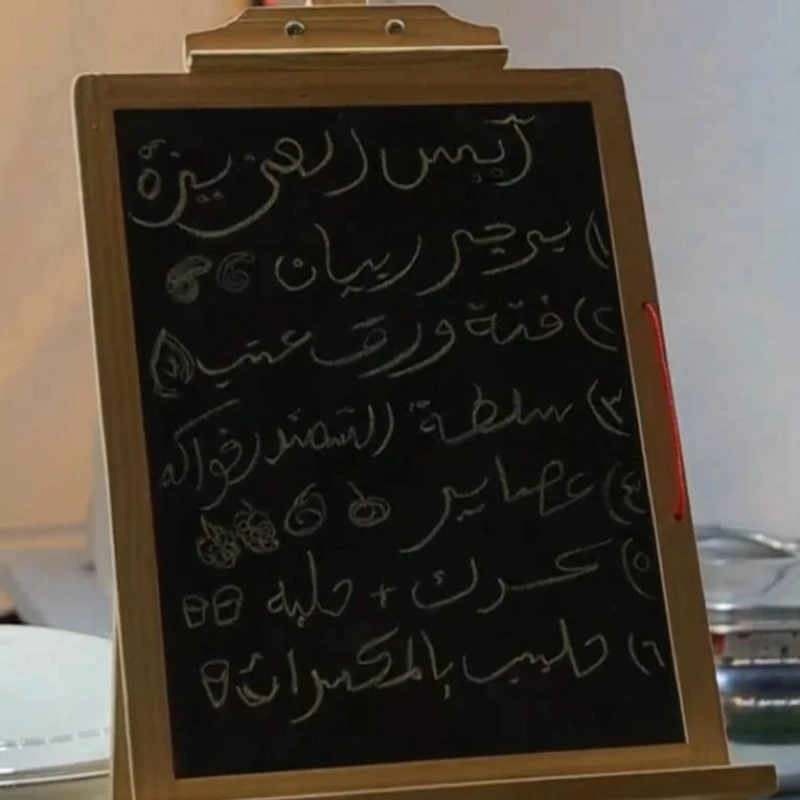 ١) برجر ربيان
٢) فتة ورق عنب
٣) سلطة الشمندر فواكه
٤) عصاير
٥) كرك + حلبه
٦) حليب بالمكسرات